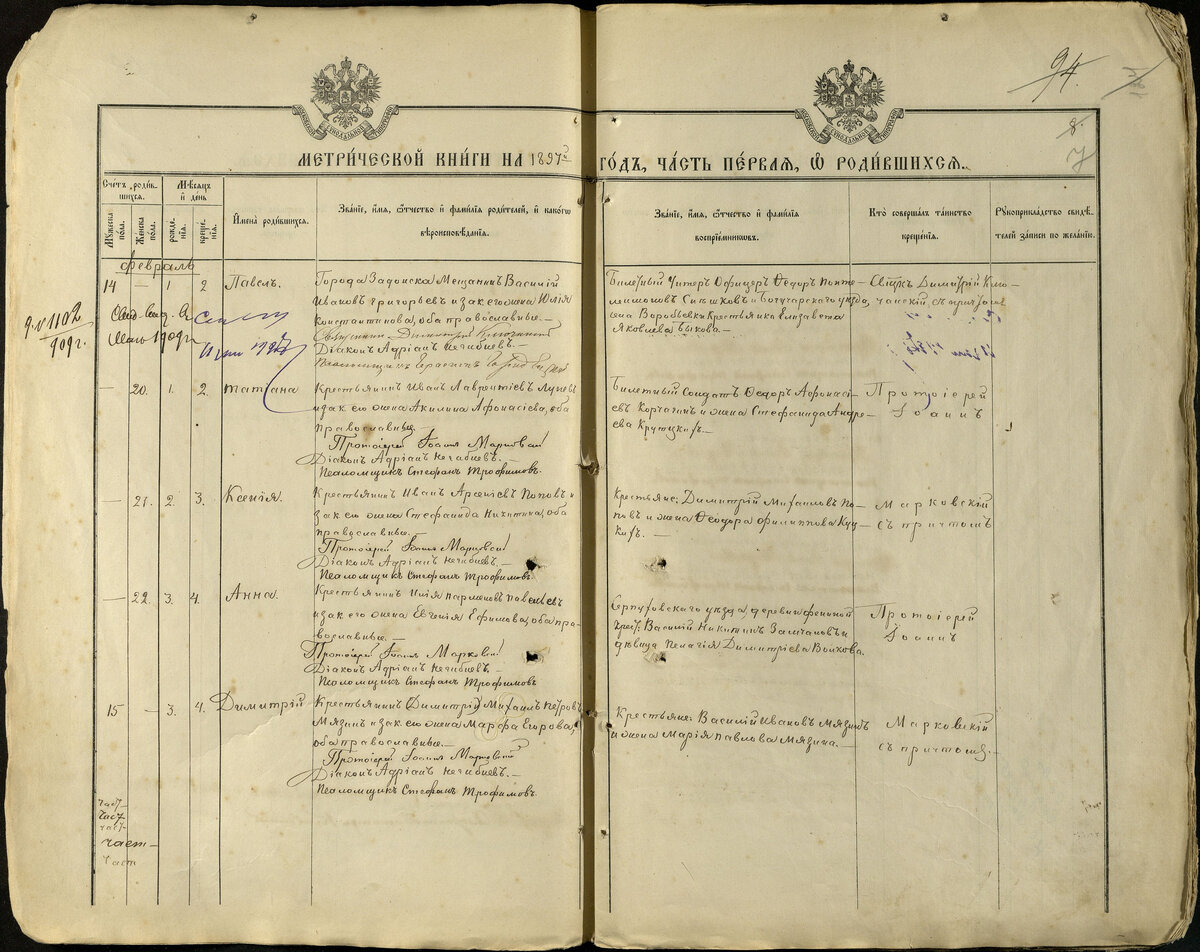 94.
8.
7
МЕТРИ́ЧЕСКОЙ КНИ́ГИ НА 1897й ГО́ДЪ, ЧА́СТЬ ПЕ́РВАѦ, Ѡ РОДИ́ВШИХСѦ.
Счетъ родив-
шихся.
Мѣсяцъ
и день
Мужеска
пола.
Женска
пола.
рожде-
нія.
креще-
нія.
Имена родившихся.
Званіе, имя, отчество и фамилія родителей, и какого
вѣроисповѣданія.
Званіе, имя, отчество и фамилія
воспріемниковъ.
Кто совершалъ таинство
крещенія.
Рукоприкладство свидѣ-
телей записи по желанію.
февраль
14 — 1 2 Павелъ.
Города Задонска Мещанинъ Василій
Ивановъ Григорьевъ и зак. его жена Юлія
Константинова, оба православные. —
Священникъ Димитрій
Діаконъ Адріанъ Нечибиевъ. —
Билетный Унтеръ Офицеръ Ѳедоръ
и Богучарскаго уѣзда,
села Воробьевки Крестьянка Елизавета
Яковлева Быкова. —
Свящ. Димитрій
съ причтомъ
д. № 1102
909 г.
— 20. 1. 2. Татіана
Крестьянинъ Иванъ Лаврентіевъ
и зак. его жена Акилина Афонасіева, оба
православные. —
Протоіерей Іоаннъ Марковскій
Діаконъ Адріанъ Нечибиевъ. —
Псаломщикъ Стефанъ Трофимовъ.
Билетный Солдатъ Ѳедоръ Афонасі-
евъ Корчагинъ и жена Стефанида Андре-
ева
Протоіерей
Іоаннъ
— 21. 2. 3. Ксенія.
Крестьянинъ Иванъ Арсеніевъ Поповъ и
зак. его жена Стефанида Никитина, оба
православные. —
Протоіерей Іоаннъ Марковскій
Діаконъ Адріанъ Нечибиевъ. —
Псаломщикъ Стефанъ Трофимовъ.
Крестьяне: Димитрій Михаиловъ По-
повъ и жена Ѳеодора Филиппова
Марковскій
съ причтомъ
— 22. 3. 4. Анна.
Крестьянинъ Илія Парменовъ
и зак. его жена Евгенія Ефимова, оба пра-
вославные. —
Протоіерей Іоаннъ Марковскій
Діаконъ Адріанъ Нечибиевъ. —
Псаломщикъ Стефанъ Трофимовъ
Серпуховскаго уѣзда, деревни
крест: Василій Никитинъ и
дѣвица Пелагія Димитріева Волкова.
Протоіерей
Іоаннъ
15 — 3. 4. Димитрій
Крестьянинъ Димитрій Михаилъ Петровъ
Мязинъ и зак. его жена Марфа Егорова,
оба православные. —
Протоіерей Іоаннъ Марковскій
Діаконъ Адріанъ Нечибиевъ. —
Псаломщикъ Стефанъ Трофимовъ.
Крестьяне: Василій Ивановъ Мязинъ
и жена Марія Павлова Мязина. —
Марковскій
съ причтомъ.
част-
част